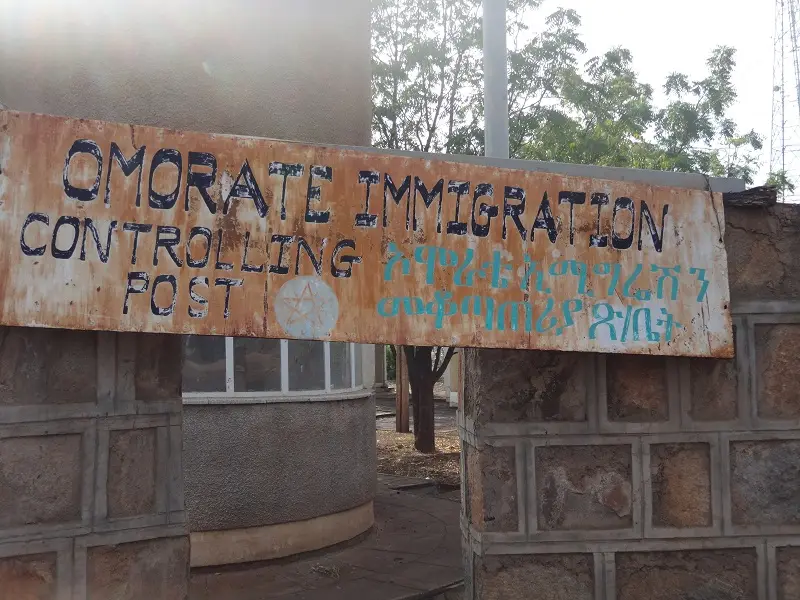 OMORATE IMMIGRATION
CONTROLLING
POST
ኦሞራቴ ኢሚግሬሽን
መቆጣጠሪያ ጽ/ቤት